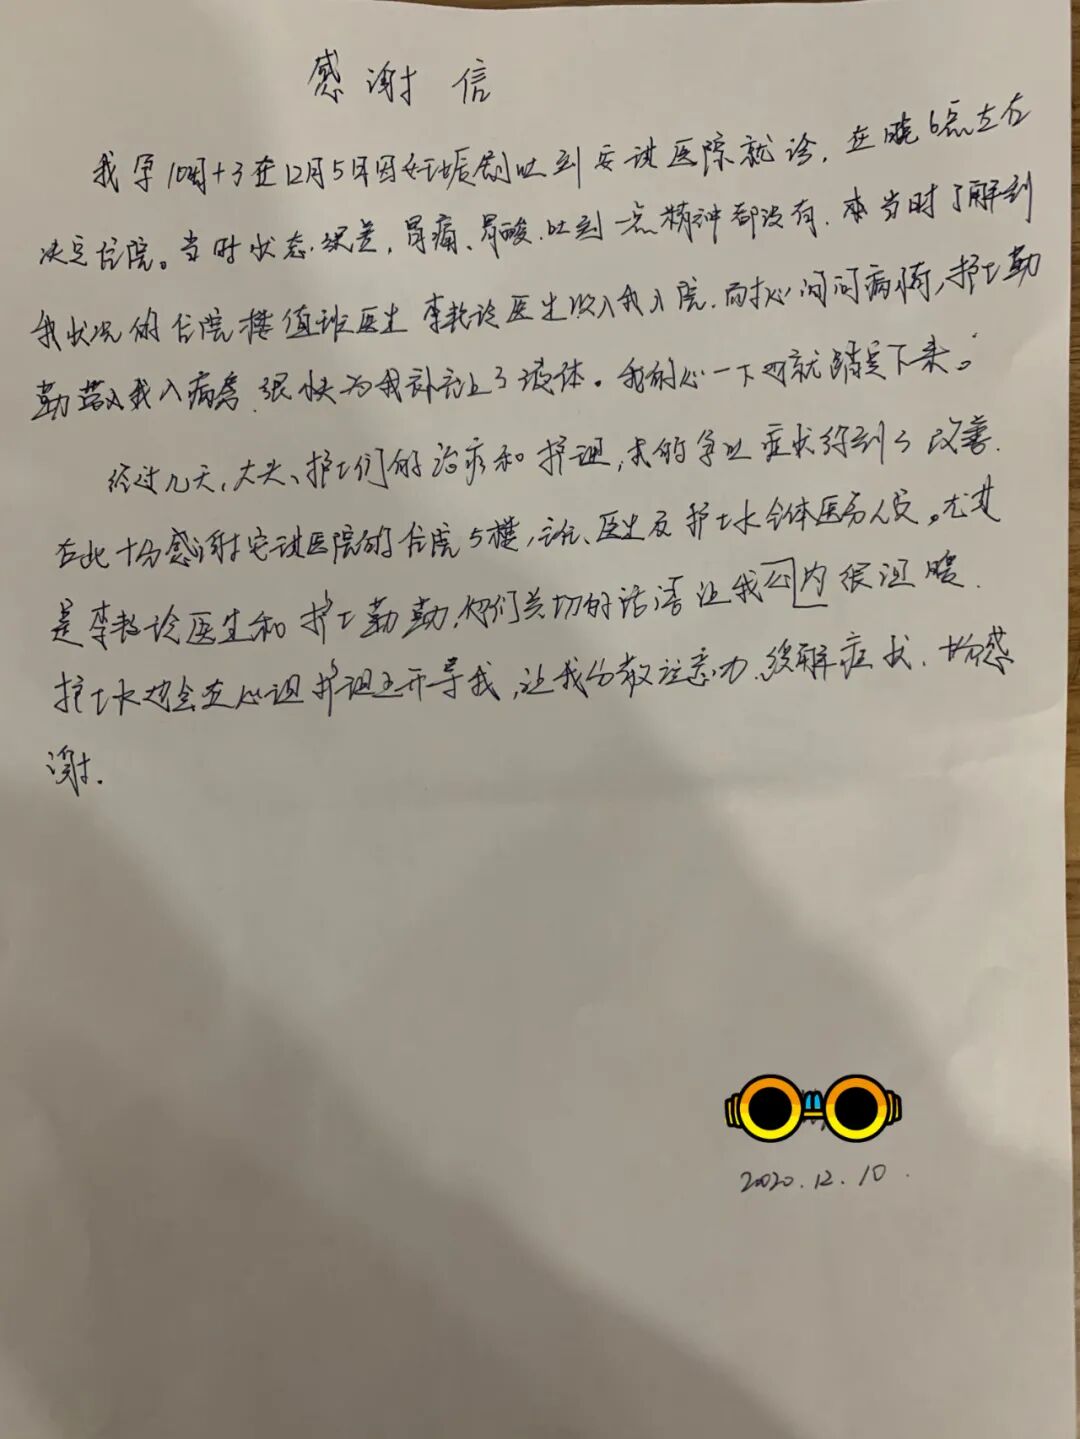 感谢信
我孕10周+3在12月5日因妊娠剧吐到安琪医院就诊，在晚6点左右
决定住院。当时状态很差，胃痛、胃酸、吐到一点精神都没有，当时了解到
我状况的住院楼值班医生李教论医生收入我入院，耐心询问病情，护士勤
勤带入我入病房，很快为我补上了液体。我的心一下也就踏定下来。
经过几天，大夫、护士们的治疗和护理，我的孕吐症状得到了改善.
在此十分感谢安琪医院的住院5楼，主任、医生及护士长全体医务人员。尤其
是李教论医生和护士勤勤，她们关切的话语让我心内很温暖.
护士长也会在心理护理上开导我，让我分散注意力，缓解症状，十分感
谢.
2020.12.10.